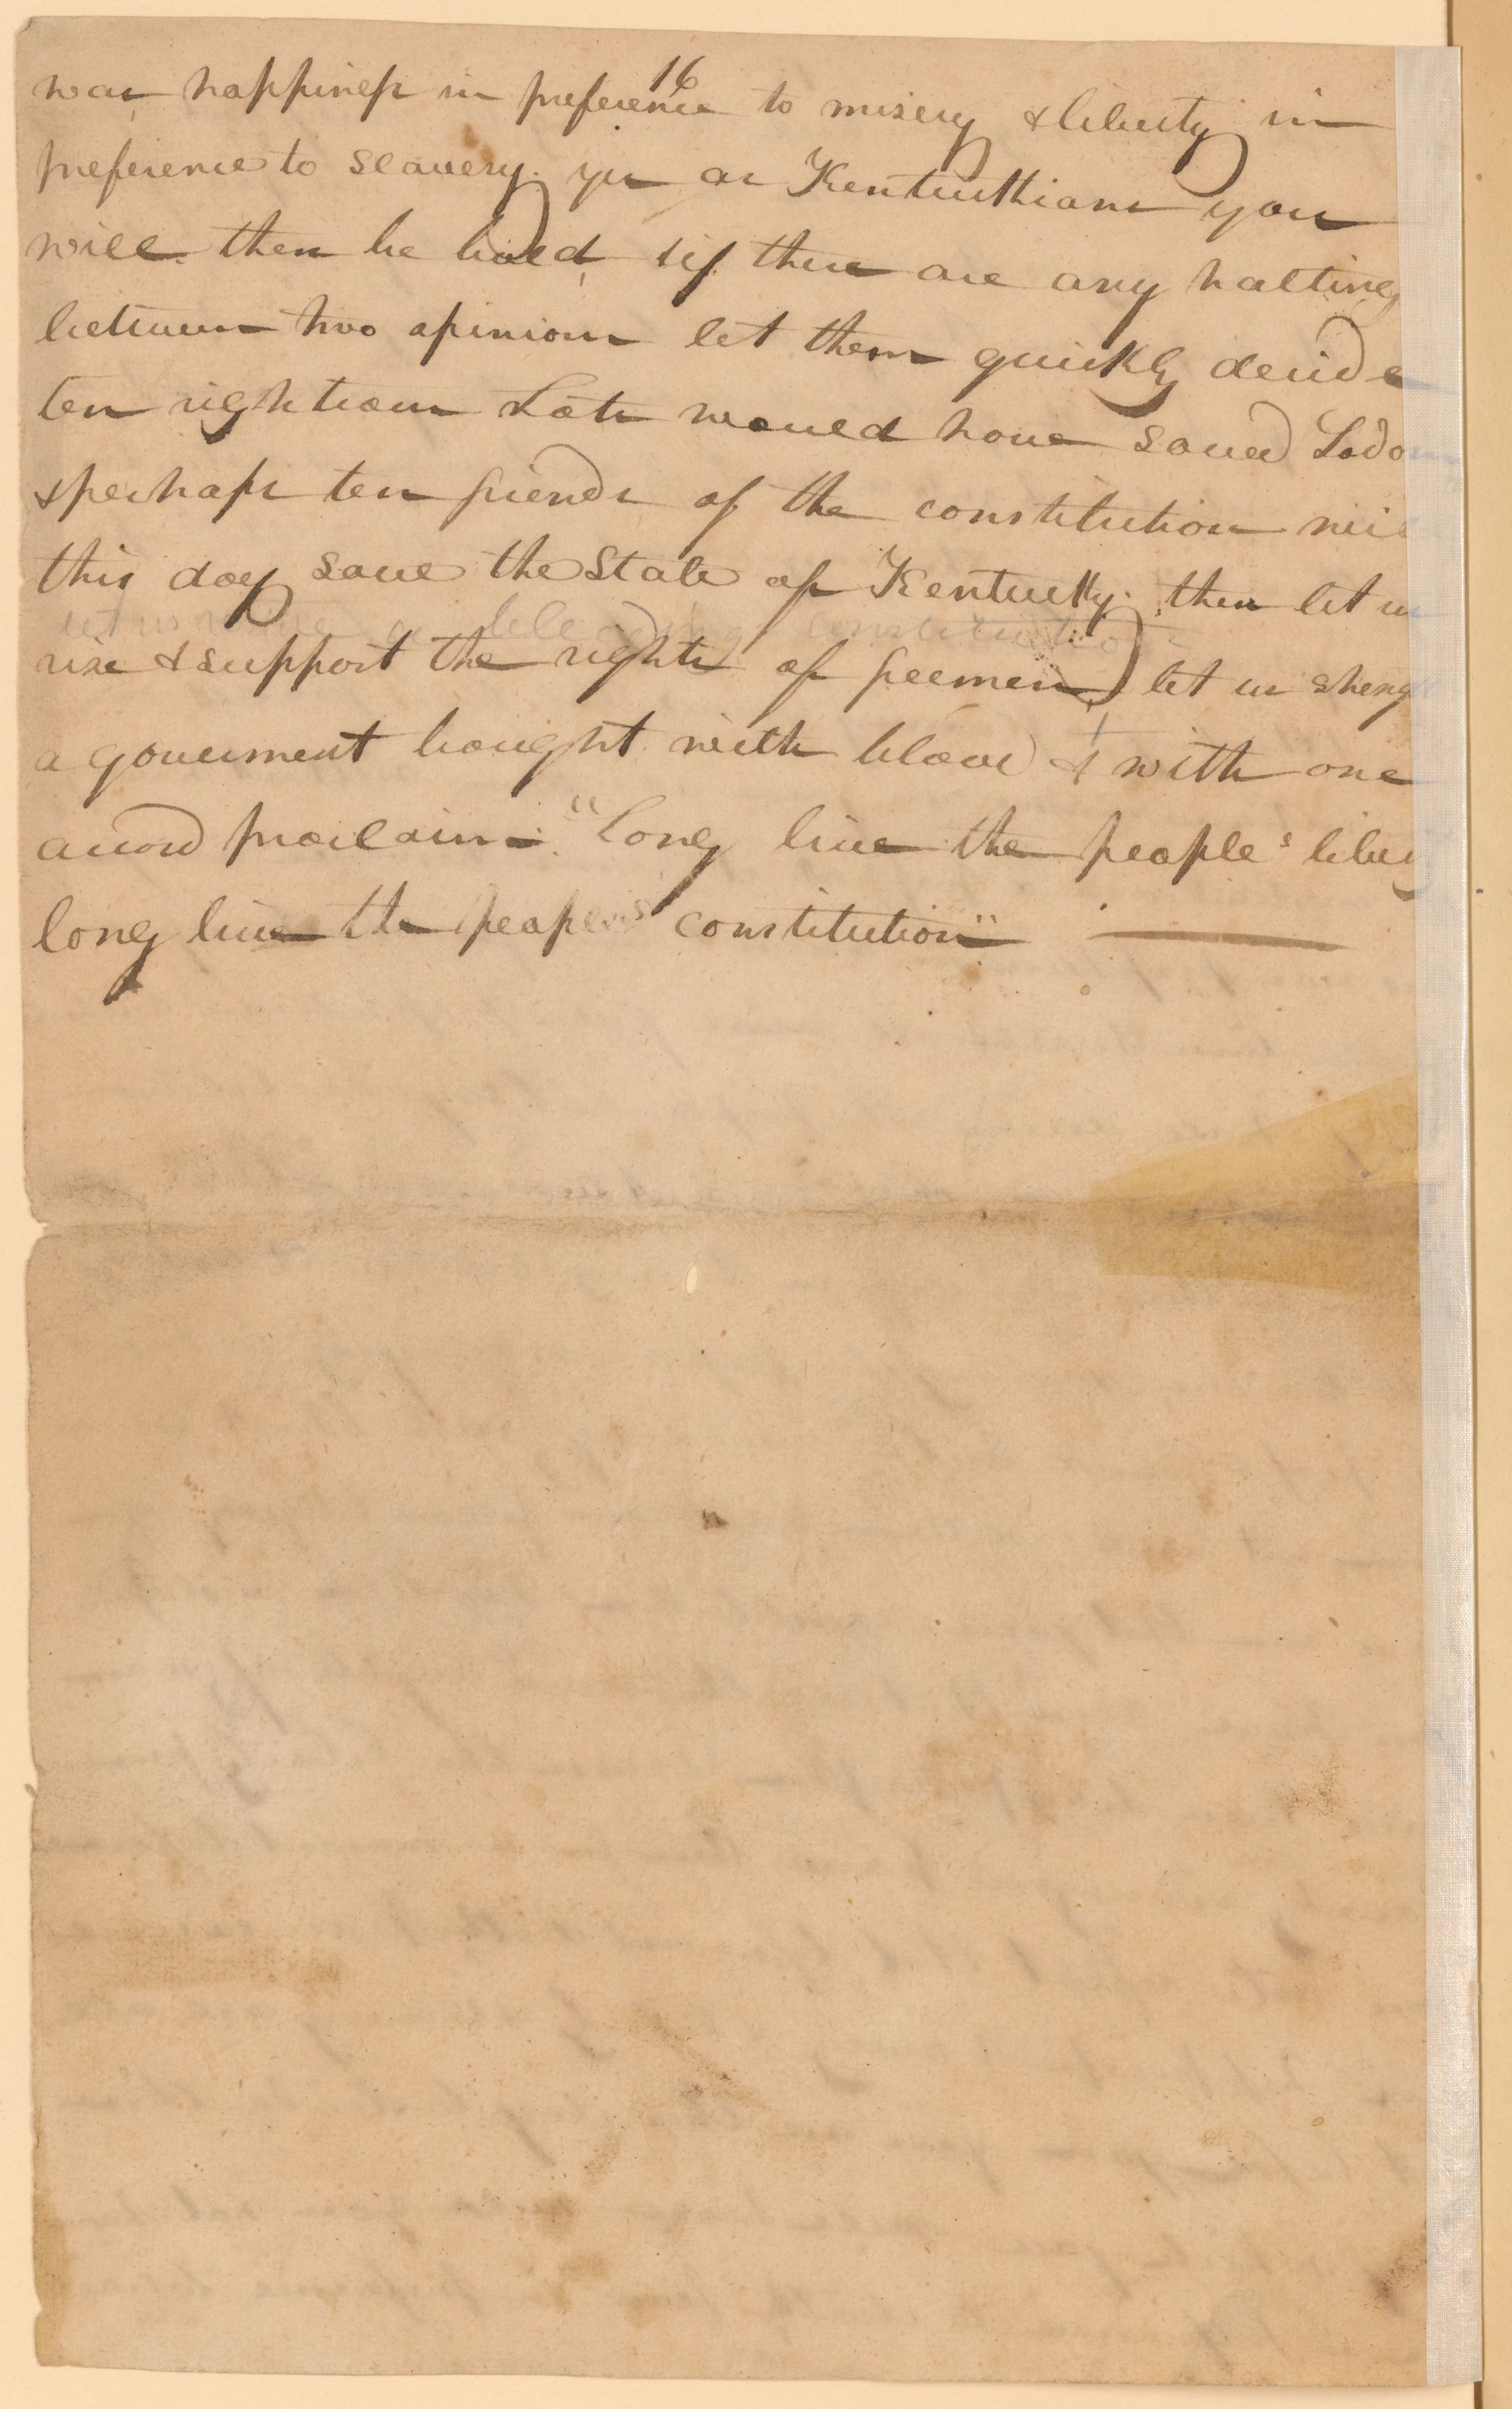 16
war happiness in preference to misery & liberty in
preference to slavery. yes as Kentuckians you
will then be hired, & if there are any halting
between two opinions let them quickly decide
ten righteous Lots would have saved Sodom
& perhaps ten friends of the constitution will
this day save the State of Kentucky. then let us
let us a bleeding constitution
rise & support the rights of freemen, let us streng
a government bought with blood & with one
accord proclaim "Long live the people's liberty
long live the people's constitution"